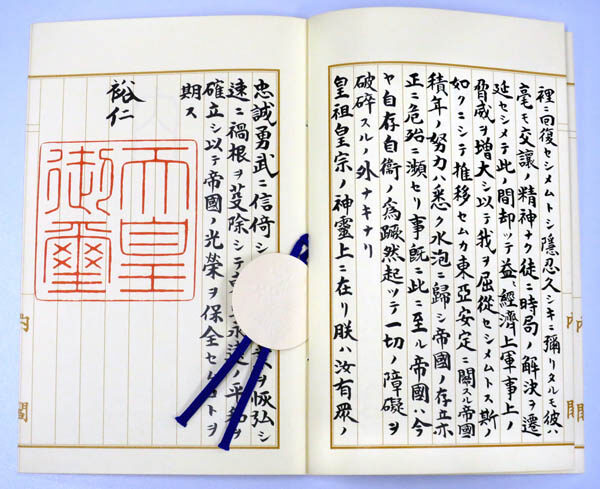 裡ニ回復セシメムトシ隱忍久シキニ彌リタルモ彼ハ
毫モ交讓ノ精神ナク徒ニ時局ノ解決ヲ遷
延セシメテ此ノ間却ツテ益〻經濟上軍事上ノ
脅威ヲ增大シ以テ我ヲ屈從セシメムトス斯ノ
如クニシテ推移セムカ東亞安定ニ關スル帝國
積年ノ努力ハ悉ク水泡ニ歸シ帝國ノ存立亦
正ニ危殆ニ瀕セリ事旣ニ此ニ至ル帝國ハ今
ヤ自存自衞ノ爲蹶然起ツテ一切ノ障礙ヲ
破碎スルノ外ナキナリ
皇祖皇宗ノ神靈上ニ在リ朕ハ汝有眾ノ
忠誠勇武ニ信倚シ業ヲ恢弘シ
速ニ禍根ヲ芟除シテ永遠ノ平和ヲ
確立シ以テ帝國ノ光榮ヲ保全セムコトヲ
期ス
裕仁
天皇
御璽
内閣